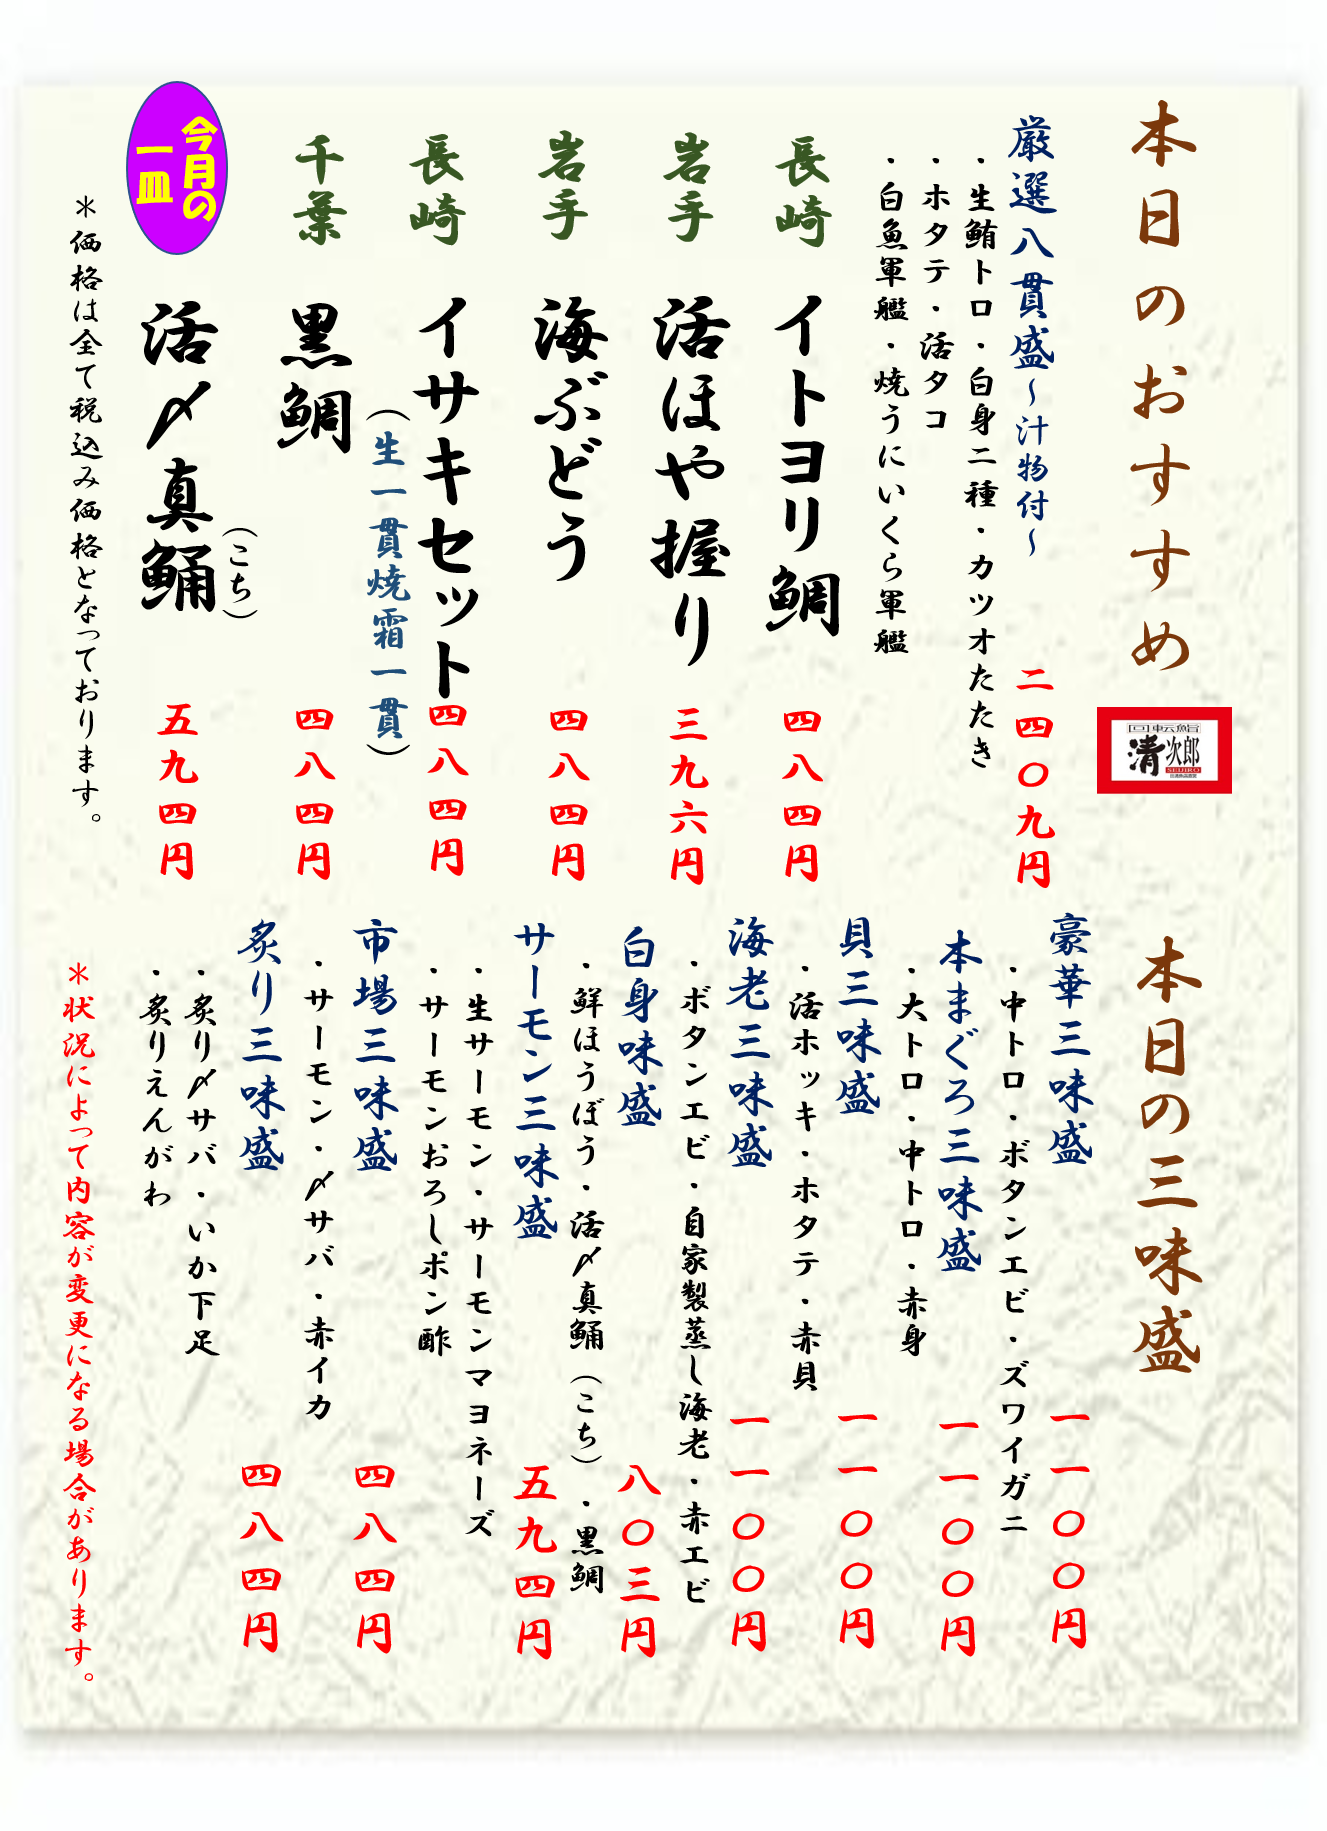 本日のおすすめ
回転鮨
清次郎
SEIJIRO
厳選八貫盛~汁物付~
二四〇九円
・生鮪トロ・白身二種・カツオたたき
・ホタテ・活タコ
・白魚軍艦・焼うにいくら軍艦
長崎 イトヨリ鯛 四八四円
岩手 活ほや握り 三九六円
岩手 海ぶどう 四八四円
長崎 イサキセット 四八四円
(生一貫焼霜一貫)
千葉 黒鯛 四八四円
今月の
一皿
活〆真鯒 五九四円
(こち)
*価格は全て税込み価格となっております。
本日の三味盛
豪華三味盛 一一〇〇円
・中トロ・ボタンエビ・ズワイガニ
本まぐろ三味盛 一一〇〇円
・大トロ・中トロ・赤身
貝三味盛 一一〇〇円
・活ホッキ・ホタテ・赤貝
海老三味盛 一一〇〇円
・ボタンエビ・自家製蒸し海老・赤エビ
白身味盛 八〇三円
・鮮ほうぼう・活〆真鯒(こち)・黒鯛
サーモン三味盛 五九四円
・生サーモン・サーモンマヨネーズ
・サーモンおろしポン酢
市場三味盛 四八四円
・サーモン・〆サバ・赤イカ
炙り三味盛 四八四円
・炙り〆サバ・いか下足
・炙りえんがわ
*状況によって内容が変更になる場合があります。